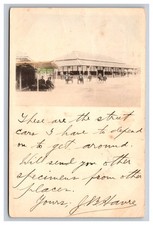 These are the street
cars I have to depend
on to get around.
Will send you other
specimens from other
places.
Yours, J B Havre